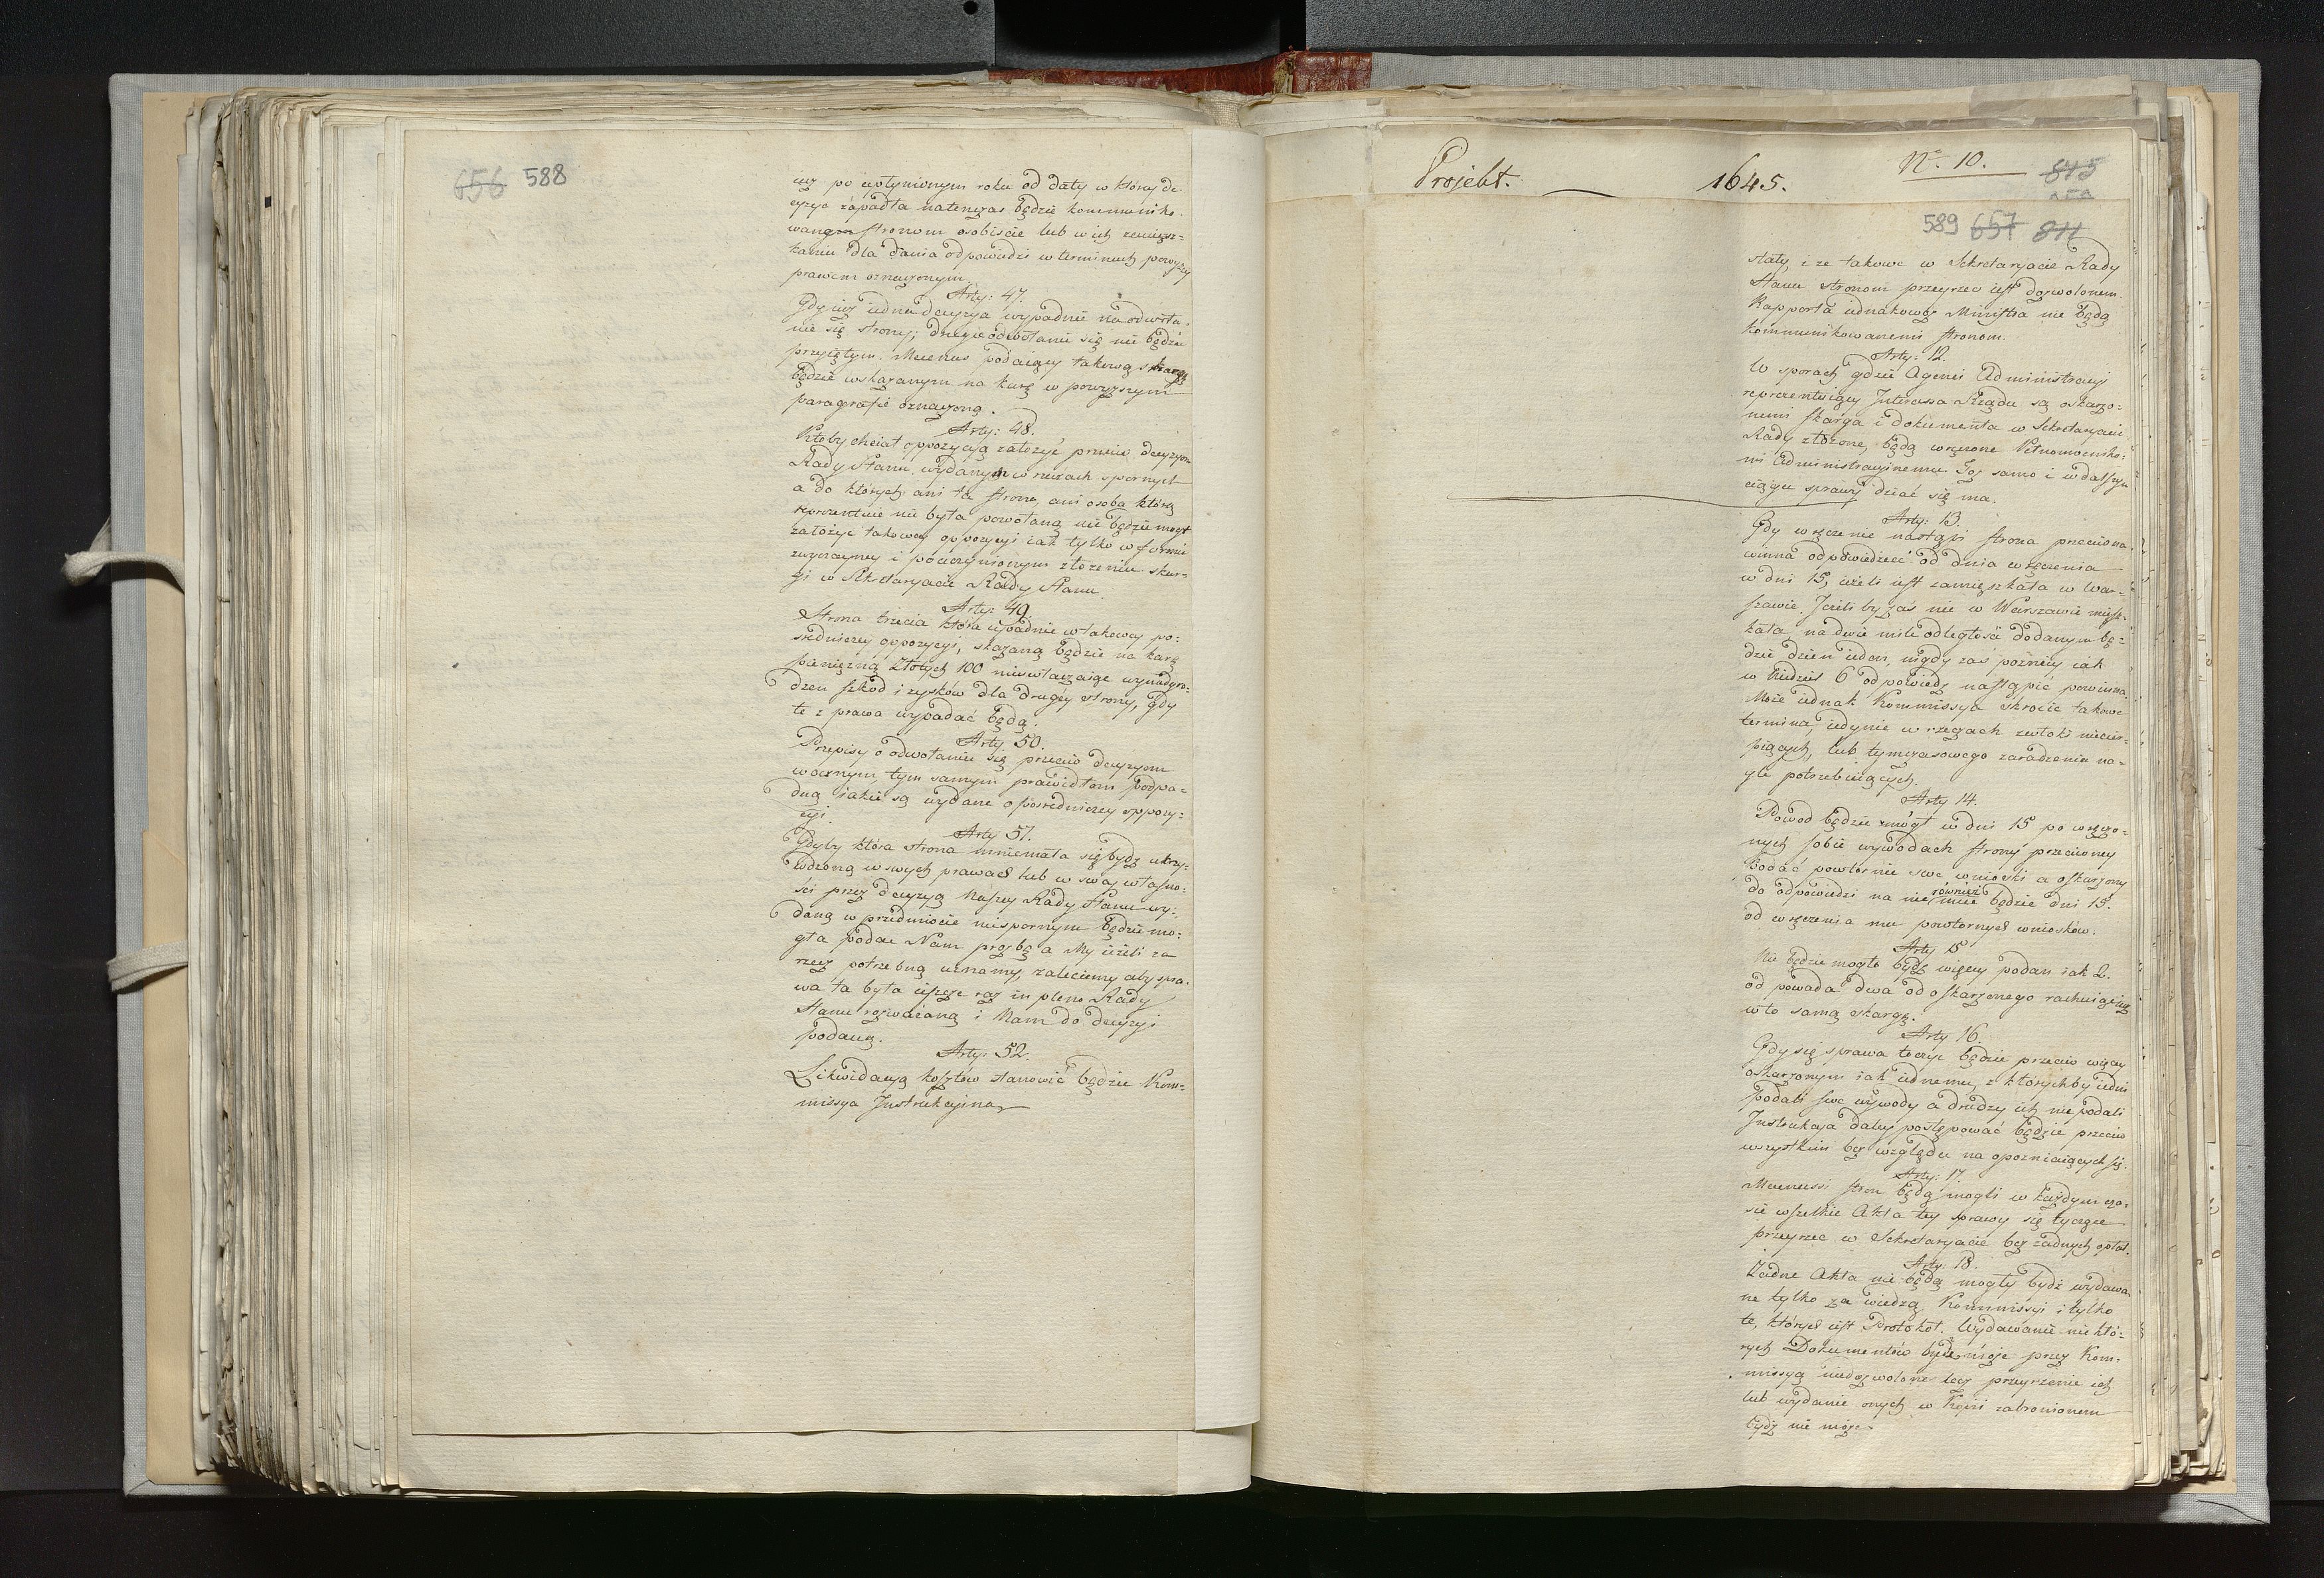 656 588
cuz po upłynionym roku od daty w którey de-
cyzya zapadła natenczas będzie kommuniko-
wane stronom osobiście lub w ich zamiesz=
kaniu dla dania odpowiedzi w terminach powyżey
prawem oznaczonym
Arty: 47.
Gdy iuż iedna decyzya wypadnie na odwoła-
nie się strony, drugie odwołanie się nie będzie
przyiętym. Mecenas podaiący takową skargę
będzie wskazanym na karę w powyższym
paragrafie oznaczoną.
Arty: 48.
Ktoby chciał oppozycyą założyć przeciw decyzyom
Rady Stanu, wydanym w rzeczach spornych
a do których ani ta strona, ani osoba którą
reprezentuie nie była powołaną nie będzie mógł
założyć takowey oppozycyi iak tylko w formie
zwyczayney i po uczynionym złożeniu skar=
gi w Sekretaryacie Rady Stanu
Arty: 49.
Strona trzecia która upadnie w takowey po=
średniczey oppozycyi, skazaną będzie na karę
pieniężną Złotych 100 niewłączaiąc wynadgro=
dzeń szkód i zysków dla drugiey strony, gdy
te z prawa wypadać będą.
Arty. 50.
Przepisy o odwołaniu się przeciw decyzyom
ocznym, tym samym prawidłom podpa=
dną iakie są wydane o pośredniczey oppozy=
cyi.
Arty 51.
Gdyby która strona mniemała się bydź ukrzy=
wdzoną w swych prawach lub w swey własno=
ści przez decyzyą Naszey Rady Stanu wy=
daną w przedmiocie niespornym będzie mo=
gła podać Nam prozbę a My ieżeli za
rzecz potrzebną uznamy, zalecimy aby spra-
wa ta była ieszcze raz in pleno Rady
Stanu rozważaną i Nam do decyzyi
podaną.
Arty: 52.
Likwidacyą kosztów stanowić będzie Kom=
missya Instrukcyina
Projekt. 1645. Nº. 10. 845
589 657 811
stały, i że takowe w Sekretaryacie Rady
Stanu stronom przeyrzeć iest dozwolonem.
Rapporta iednakowoż Ministra nie będą
kommunikowanemi stronom.
Arty: 12.
W sporach gdzie Agenci Administracyi
reprezentuiący Interessa Rządu są oskarżo=
nemi skarga i dokumenta w Sekretaryacie
Rady złożone, będą wręczone Pełnomocniko=
wi Administracyinemu Toż samo i w dalszym
ciągu sprawy dziać się ma.
Arty: 13.
Gdy wręczenie nastąpi strona przeciwna
winna odpowiedzieć od dnia wręczenia
w dni 15, ieżeli iest zamieszkała w War=
szawie. Jeżeliby zaś nie w Warszawie miesz=
kała, na dwie mile odległości dodanym bę=
dzie dzień ieden, nigdy zaś poźniey iak
w Niedziel 6 odpowiedź nastąpić powinna.
Może iednak Kommissya skrócić takowe
termina, iedynie w rzeczach zwłoki niecier=
piących, lub tymczasowego zaradzenia na=
gle potrzebuiących.
Arty 14.
Powod będzie mógł w dni 15 po wręczo=
nych sobie wywodach strony przeciwney
podać powtórnie swe wnioski a oskarżony
do odpowiedzi na nie również mieć będzie dni 15.
od wręczenia mu powtornych wniosków.
Arty 15
Nie będzie mogło bydź więcey podań iak 2.
od powoda dwa od oskarżonego rachuiąc iuż
w to samą skargę.
Arty 16.
Gdy się sprawa toczyć będzie przeciw więcey
oskarżonym iak iednemu, z których by iedni
podali swe wywody a drudzy ich nie podali
Instrukcya daley postępować będzie przeciw
wszystkim bez względu na opozniaiących się.
Arty: 17.
Mecenassi stron będą mogli w każdym cza=
sie wszelkie Akta tey sprawy się tyczące
przeyrzeć w Sekretaryacie bez żadnych opłat.
Arty: 18.
Żadne Akta nie będą mogły bydź wydawa=
ne tylko za wiedzą Kommissyi i tylko
te, których iest Protokół. Wydawanie niektó=
rych Dokumentów bydź może przez Kom=
missyą niedozwolone lecz przeyrzenie ich
lub wydanie onych w Kopii zabronionem
bydź nie może